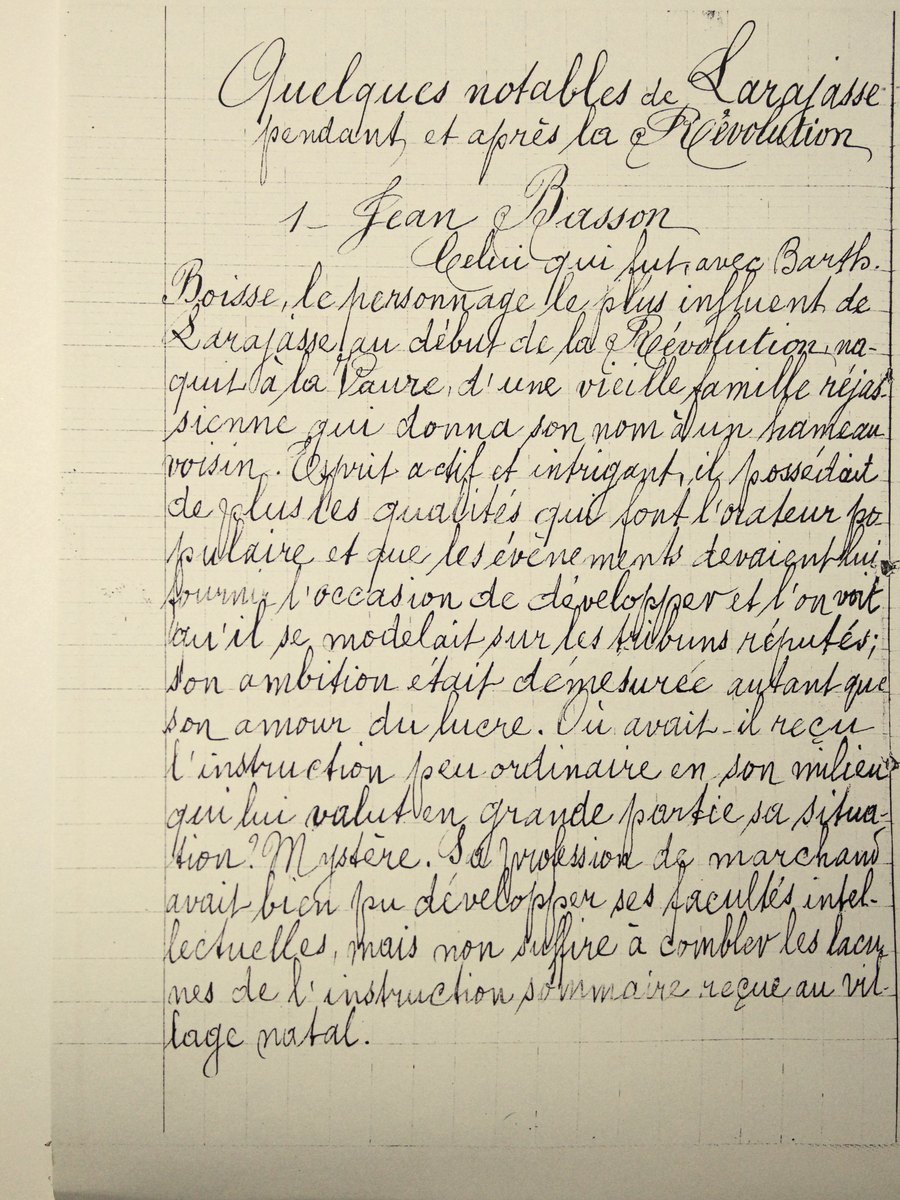 Quelques notables de Larajasse
pendant et après la Révolution
1 - Jean Basson
Celui qui fut, avec Barth.
Boisse, le personnage le plus influent de
Larajasse au début de la Révolution, na-
quit à la Vaure, d'une vieille famille réjas-
sienne qui donna son nom à un hameau
voisin. Esprit actif et intrigant, il possédait
de plus les qualités qui font l'orateur po-
pulaire et que les évènements devaient lui
fournir l'occasion de développer et l'on voit
qu'il se modelait sur les tribuns réputés;
son ambition était démesurée autant que
son amour du lucre. Où avait-il reçu
l'instruction peu ordinaire en son milieu
qui lui valut en grande partie sa situa-
tion? Mystère. Sa profession de marchand
avait bien pu développer ses facultés intel-
lectuelles, mais non suffire à combler les lacu-
nes de l'instruction sommaire reçue au vil-
lage natal.